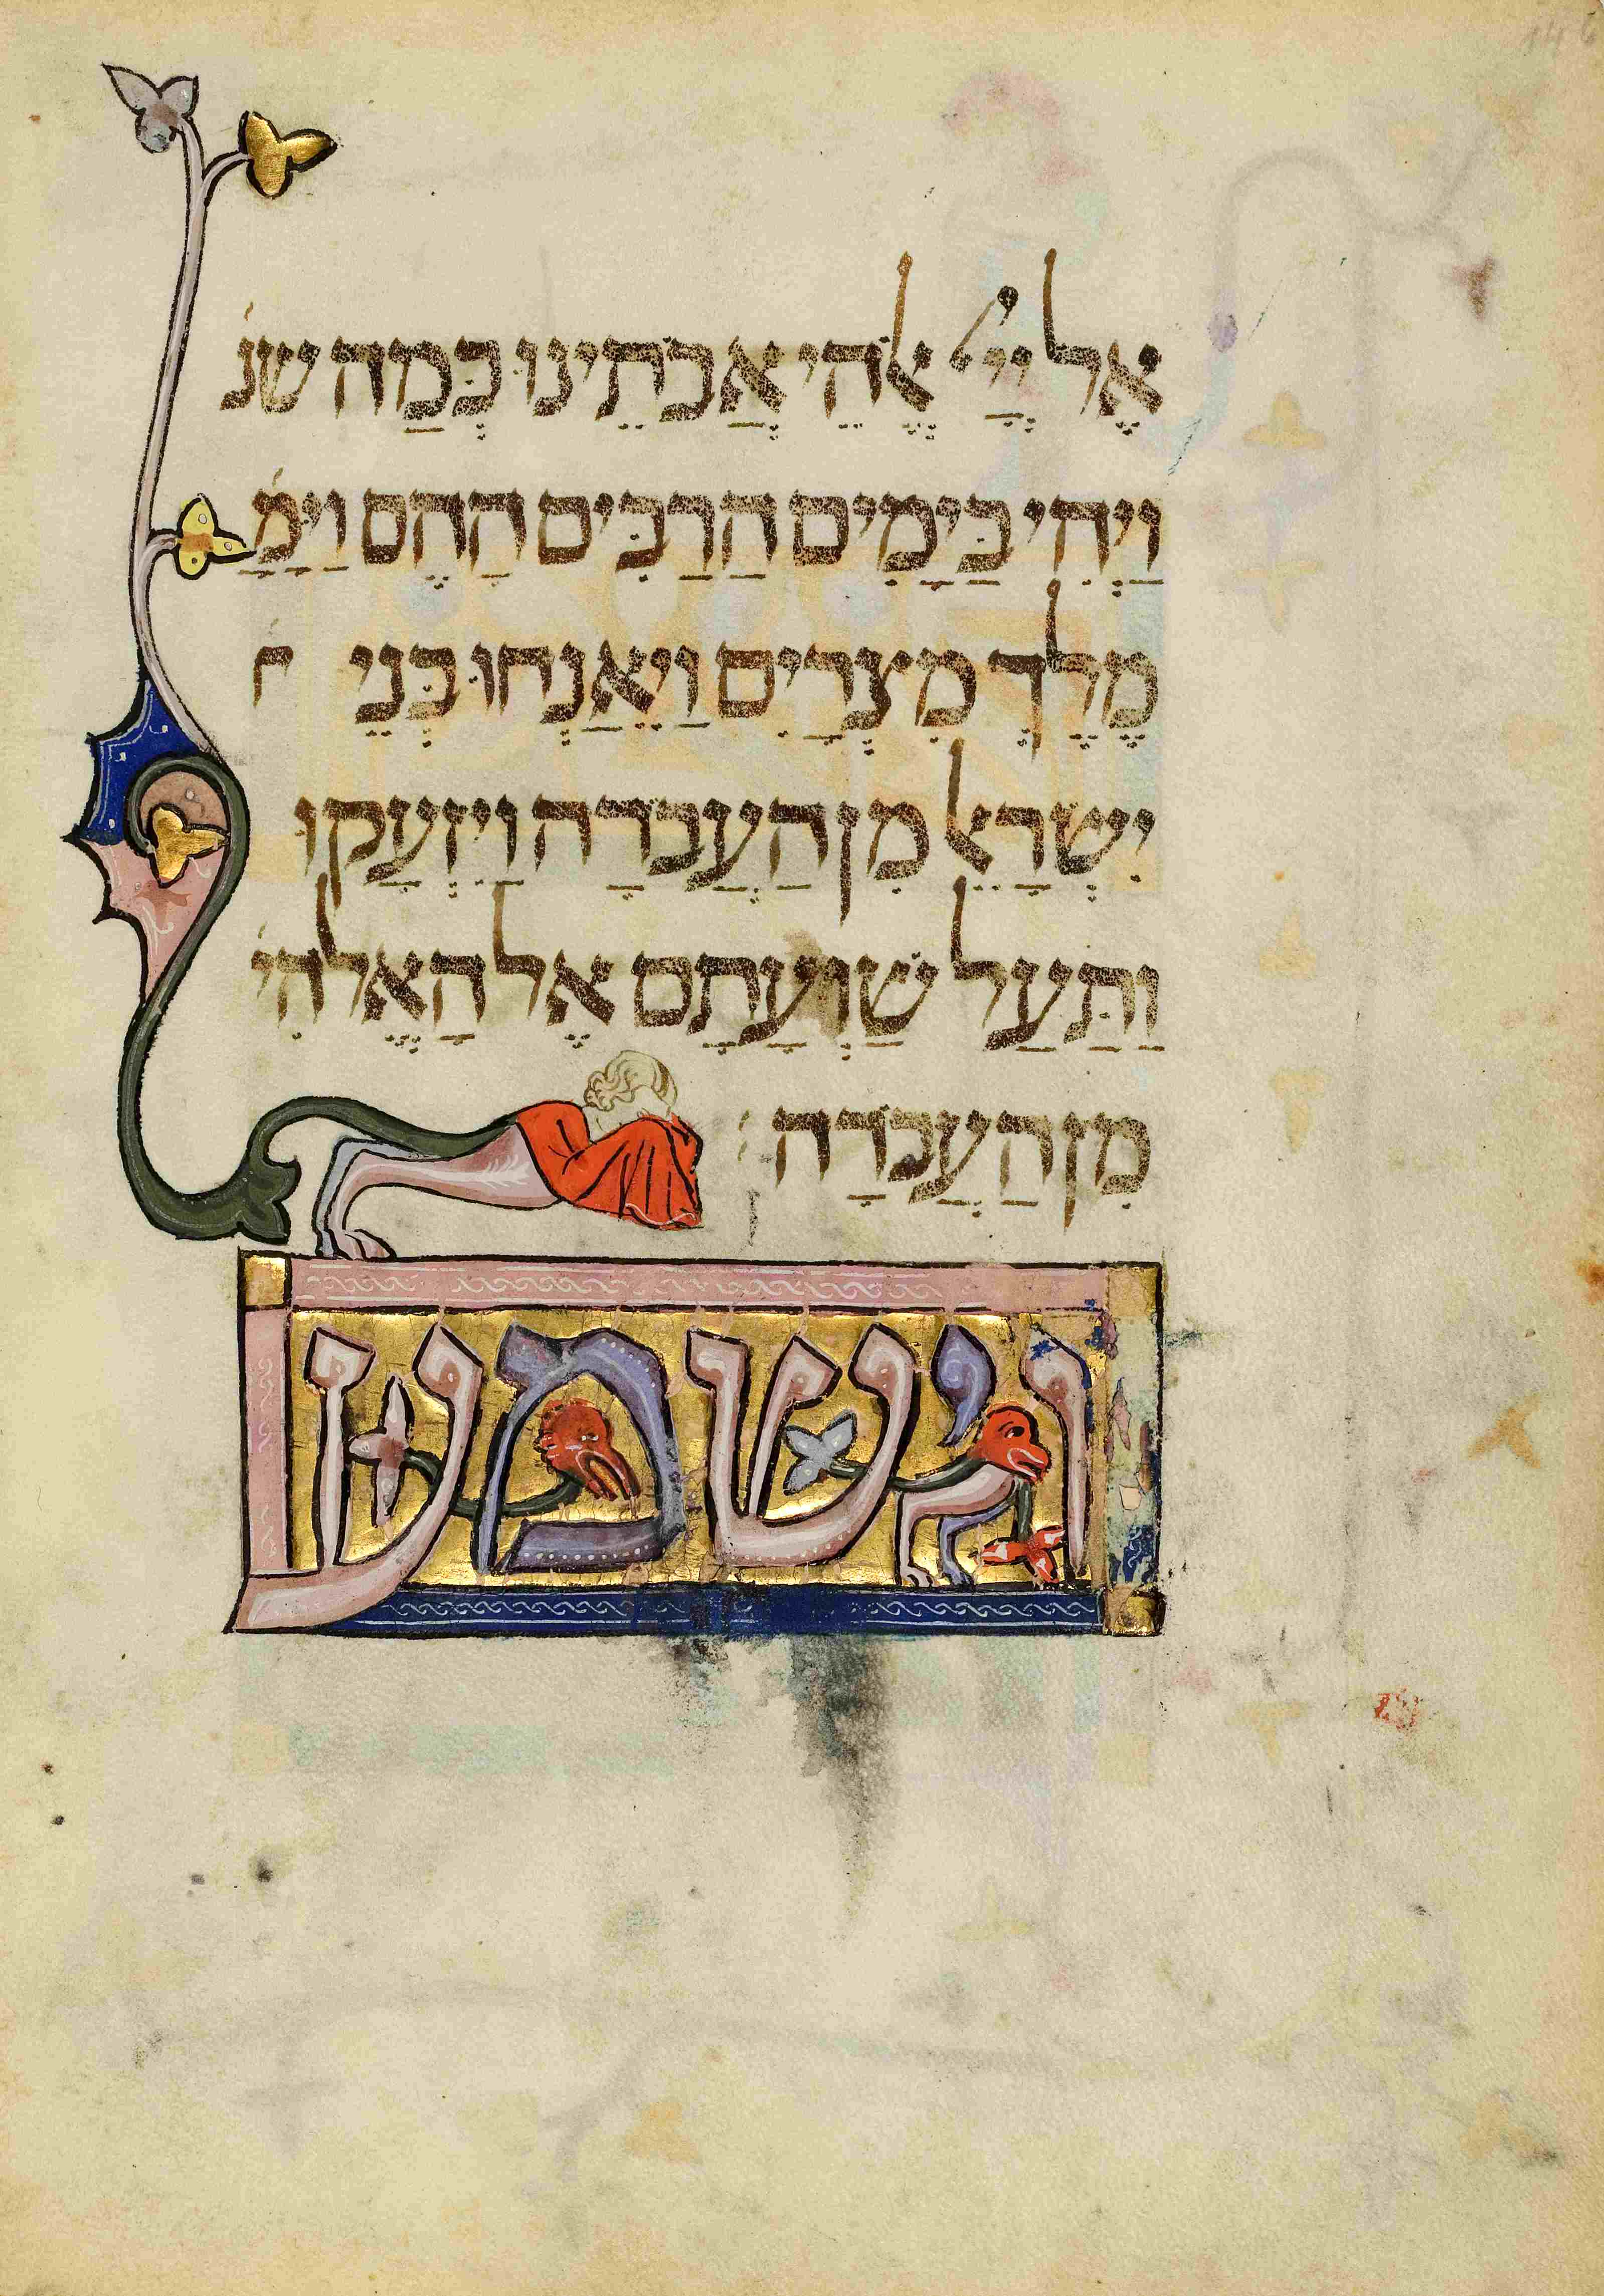 אֶל יְיָ אֱלֹהֵי אֲבֹתֵינוּ כְּמַה שנ
וַיְהִי בַּיָמִים הָרַבִּים הַהֶם וַיַמ
מֶלֶךְ מִצְרַיִם וַיֵאַנְחוּ בְּנֵי י
יִשְׂרַאֵל מִן הַעֲבֹדַה וַיִזְעַקוּ
וַתַּעַל שַׁוְעַתָם אֶל הַאֱלֹהִי
מִן הַעֲבֹדַה:
וישמע